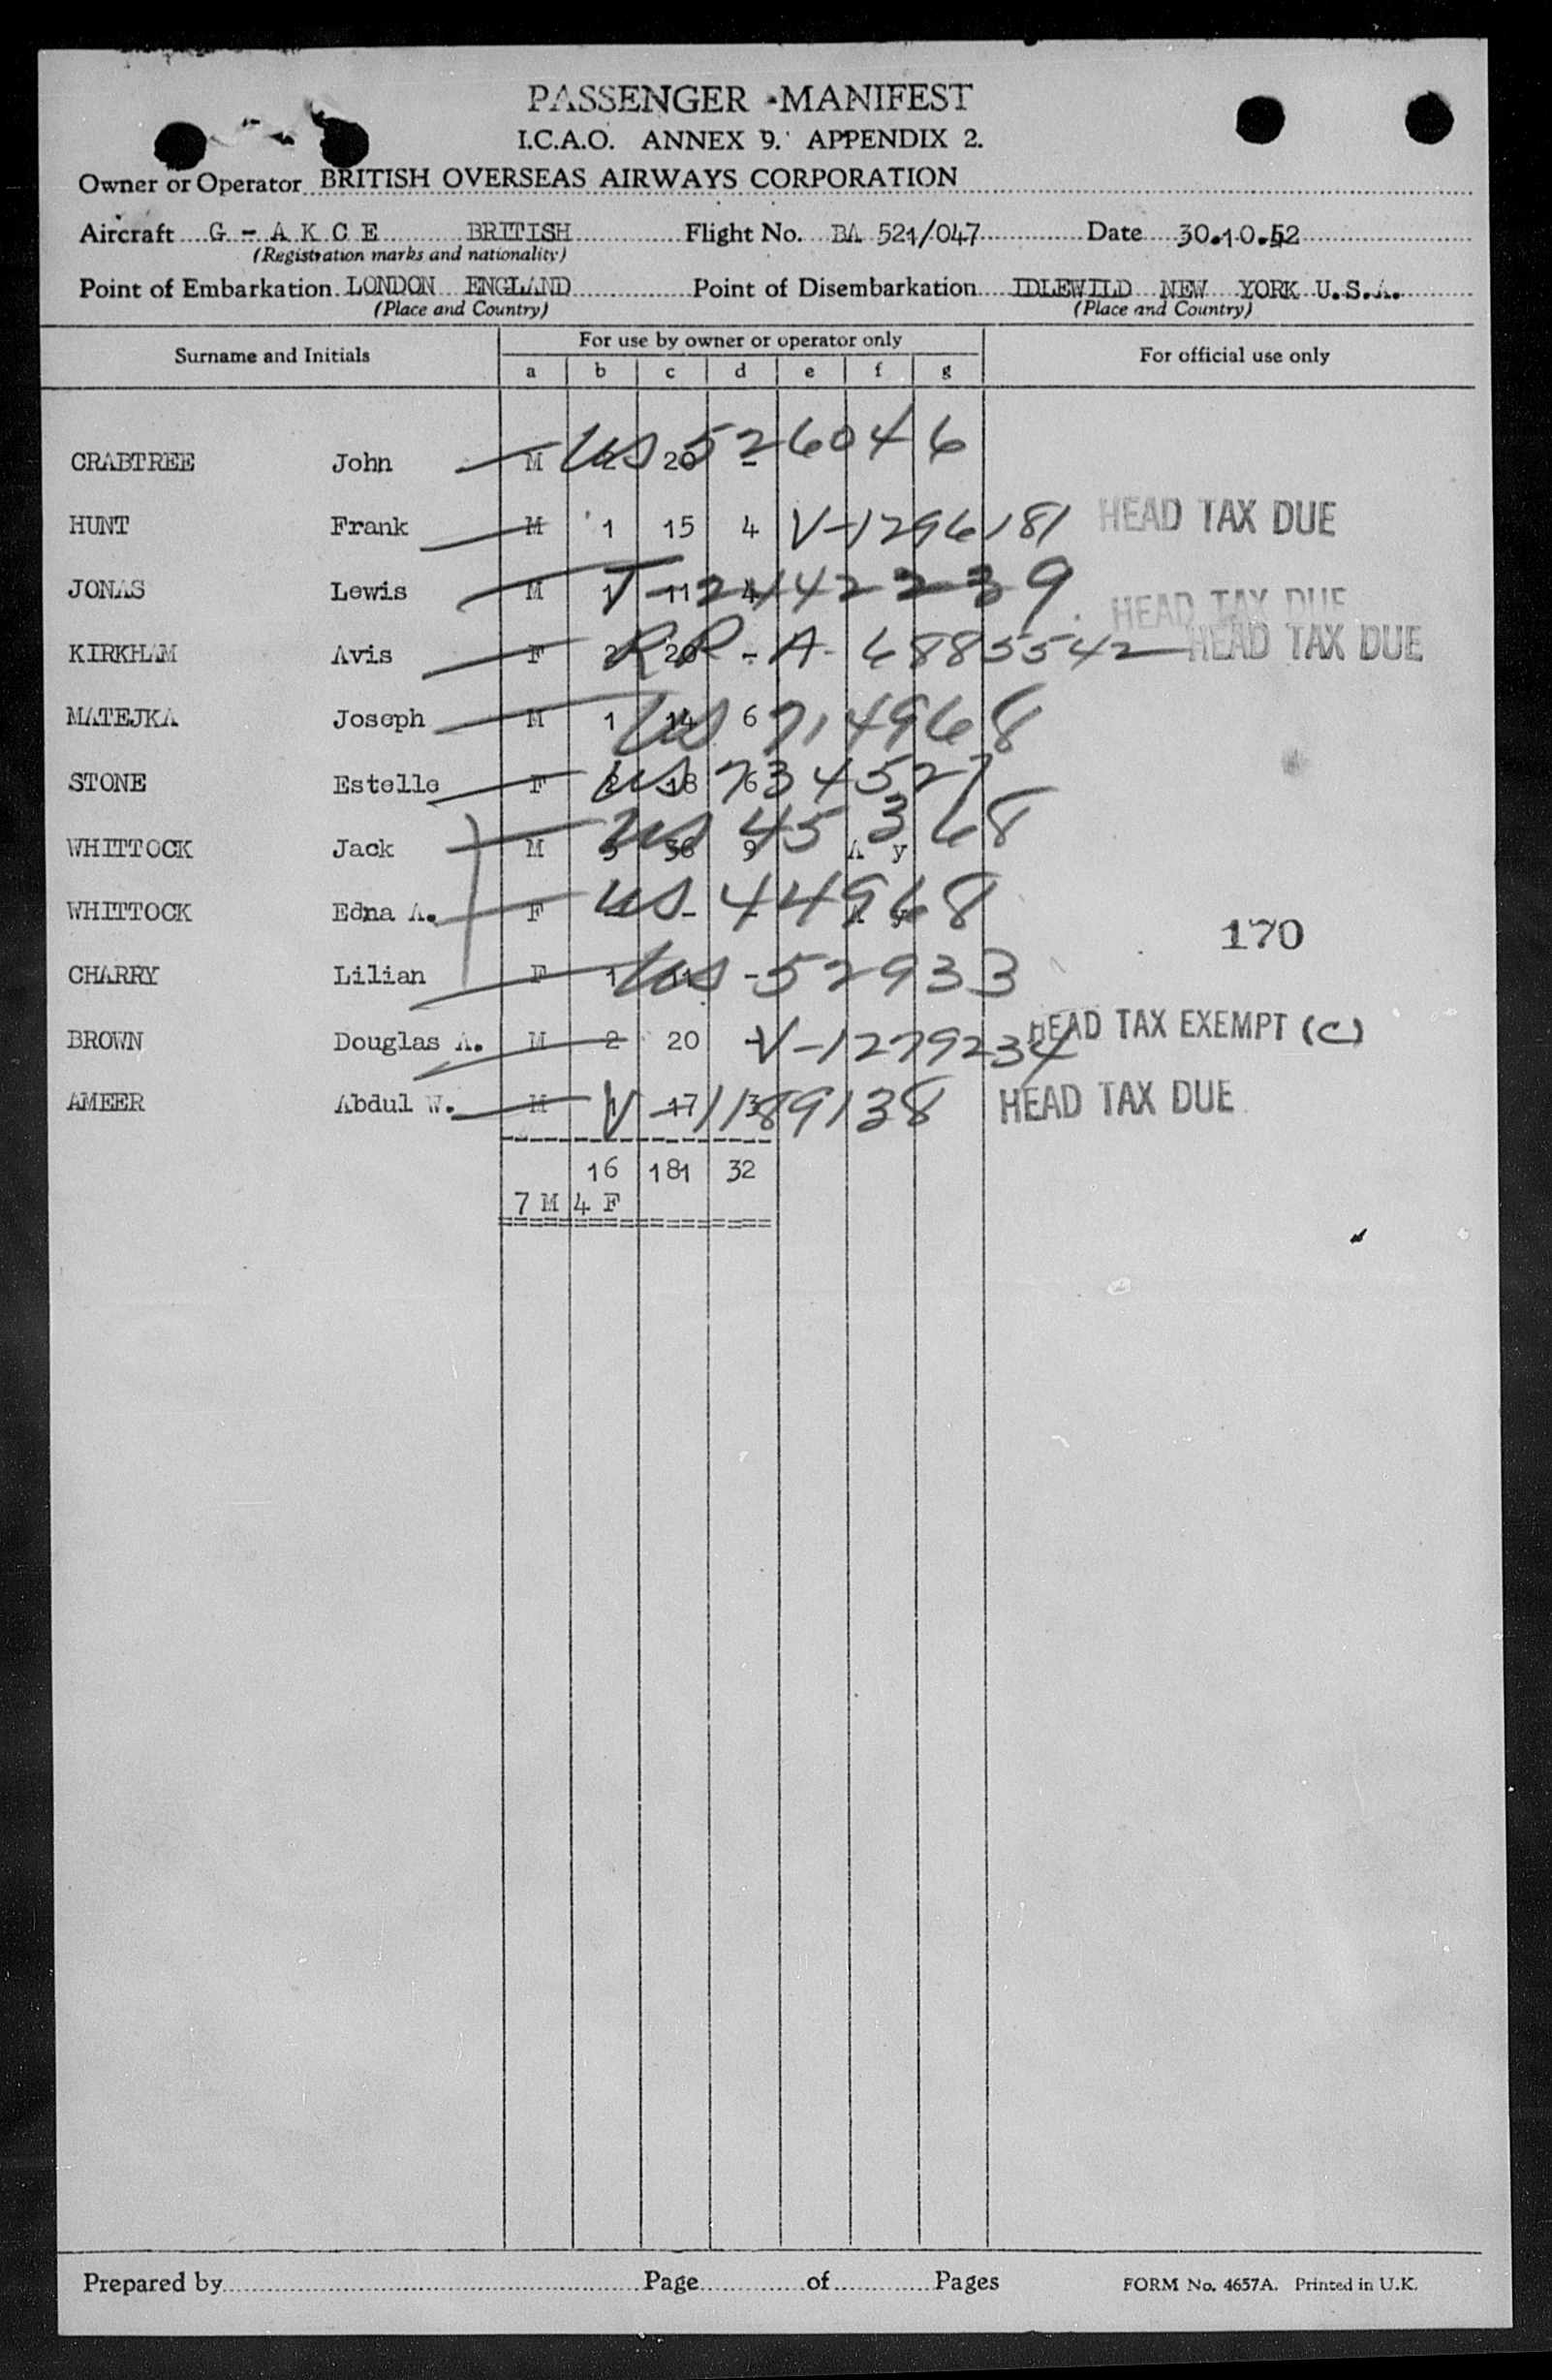 PASSENGER MANIFEST
I.C.A.O. ANNEX 9. APPENDIX 2.
Owner or Operator BRITISH OVERSEAS AIRWAYS CORPORATION
Aircraft G - A K C E BRITISH Flight No. BA 521/047 Date 30.10.52
(Registration marks and nationality)
Point of Embarkation LONDON ENGLAND Point of Disembarkation IDLEWILD NEW YORK U.S.A.
(Place and Country) (Place and Country)
Surname and Initials For use by owner or operator only For official use only
a b c d e f g
CRABTREE John M US 526046 20 -
HUNT Frank M 1 15 4 V-1296181 HEAD TAX DUE
JONAS Lewis M 1 11 4 T-2442239 HEAD TAX DUE
KIRKHAM Avis F 2 20 - RP-A-6885542 HEAD TAX DUE
MATEJKA Joseph M 1 14 6 US 714968
STONE Estelle F 2 18 6 US 734527
WHITTOCK Jack M 5 36 9 A y US 45368
WHITTOCK Edna A. F - - - A y US 44968
170
CHARRY Lilian F 1 11 - US 52933
BROWN Douglas A. M 2 20 - V-1279234 HEAD TAX EXEMPT (C)
AMEER Abdul W. M 1 17 3 V-1189138 HEAD TAX DUE
16 181 32
7 M 4 F
Prepared by Page of Pages FORM No. 4657A. Printed in U.K.